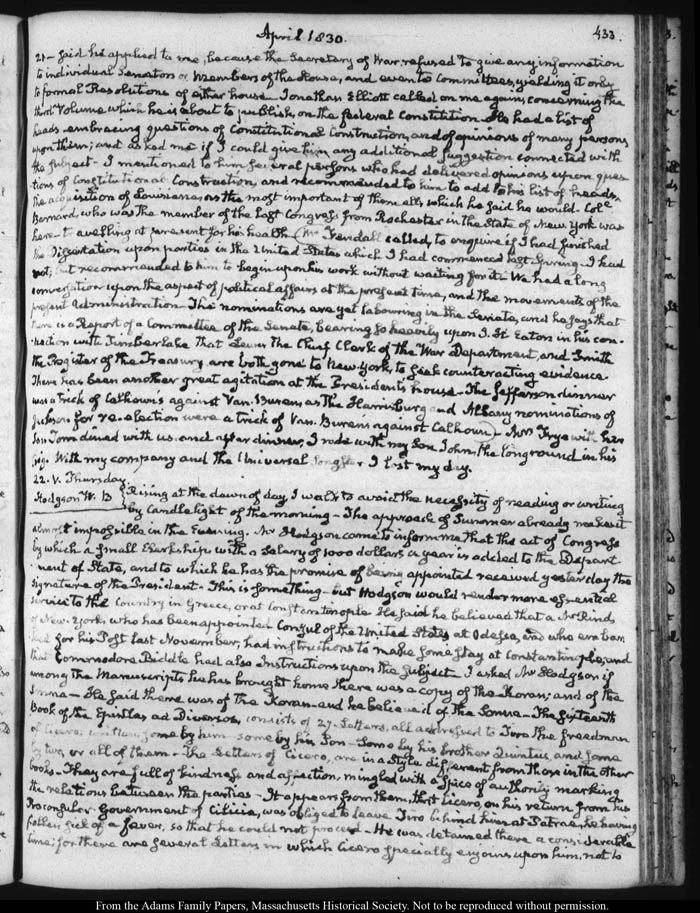 April 1830.
433.
21— said he applied to me, because the Secretary of War refused to give any information
to individual Senators or Members of the House, and even to Committees, yielding it only
to formal Resolutions of either house— Jonathan Elliott called on me again, concerning the
third Volume which he is about to publish, on the federal Constitution. He had a list of
heads embracing questions of Constitutional Construction, and of opinions of many persons
upon them; and asked me if I could give him any additional suggestion connected with
the subject— I mentioned to him several persons who had delivered opinions upon ques-
tions of Constitutional Construction, and recommended to him to add to his list of heads,
the acquisition of Louisiana, as the most important of them all, which he said he would. Cole
Barnard, who was the member of the last Congress from Rochester in the State of New York was
here— travelling at present for his health. Mr Kendall called, to enquire if I had finished
the Dissertation upon parties in the United States which I had commenced last Spring— I had
not; but recommended to him to begin upon his work without waiting for it. We had a long
conversation upon the aspect of political affairs at the present time, and the movements of the
present Administration— The nominations are yet labouring in the Senate, and he says that
there is a Report of a Committee of the Senate, bearing so heavily upon J. H. Eaton in his con-
nection with Timberlake that Lewis the Chief Clerk of the War Department, and Smith
the Register of the Treasury, are both gone to New York, to seek counteracting evidence
There has been another great agitation at the President's house— The Jefferson dinner
was a trick of Calhoun's against Van Buren, as the Harrisburg and Albany nominations of
Jackson for re-election were a trick of Van Buren against Calhoun— Mrs Frye with her
Son Tom dined with us. and after dinner, I rode with my Son John, the long round in his
gig. With my company and the Universal Songster I lost my day.
22. V. Thursday.
Hodgson W. B
Rising at the dawn of day, I walk to avoid the necessity of reading or writing
by Candlelight of the morning— The approach of Summer already makes it
almost impossible in the Evening. Mr Hodgson came to inform me that the act of Congress
by which a small Clerkship with a Salary of 1000 dollars a year is added to the Depart-
ment of State, and to which he has the promise of being appointed received yesterday the
signature of the President— This is something— but Hodgson would render more essential
service to the Country in Greece, or at Constantinople He said he believed that a Mr Rind,
of New-York, who has been appointed Consul of the United States at Odessa, and who embar-
ked for his Post last November, had instructions to make some stay at Constantinople, and
that Commodore Biddle had also Instructions upon the Subject— I asked Mr Hodgson if
among the Manuscripts he has brought home there was a copy of the Koran; and of the
Sonna— He said there was of the Koran— and he believed of the Sonna— The sixteenth
Book of the Epistles ad Diversos, consists of 27 Letters, all addressed to Tiro the freedman
of Cicero; written some by him— some by his Son— Some by his brother Quintus and some
by two, or all of them— The Letters of Cicero, are in a style different from those in the other
books— They are full of kindness and affection, mingled with a spice of authority marking
the relations between the parties— It appears from them, that Cicero, on his return from his
Proconsular Government of Cilicia, was obliged to leave Tiro behind him at Patrae, he having
fallen sick of a fever, so that he could not proceed— He was detained there a considerable
time; for there are several Letters in which Cicero specially enjoins upon him, not to
From the Adams Family Papers, Massachusetts Historical Society. Not to be reproduced without permission.